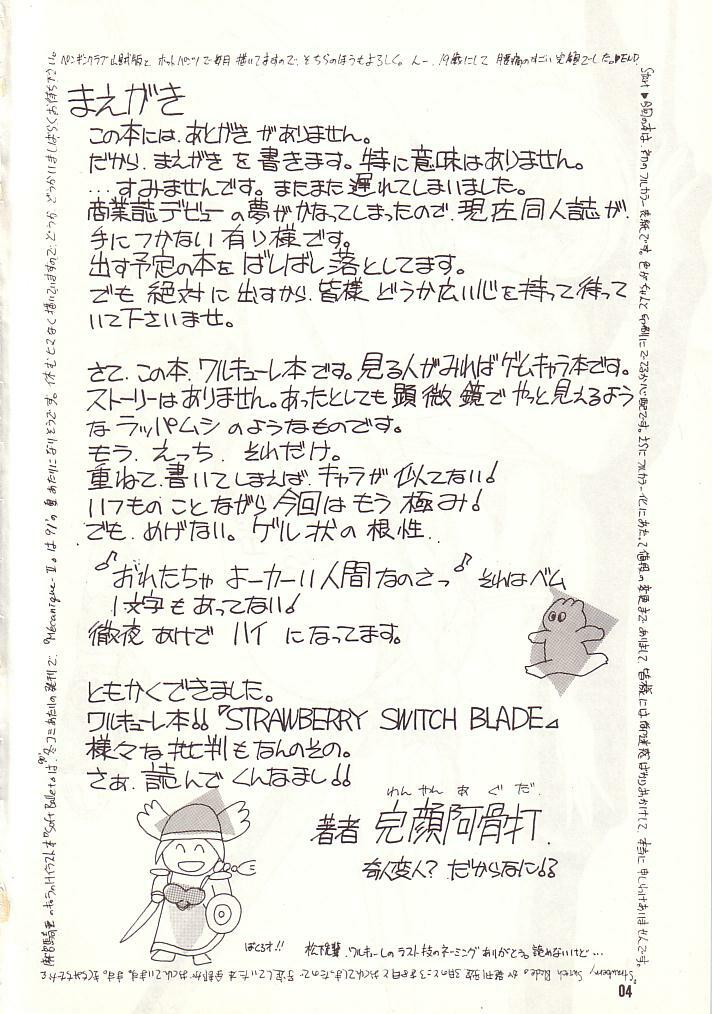 まえがき
この本には、あとがきがありません。
だから、まえがきを書きます。特に意味はありません。
…すみませんです。またまた遅れてしまいました。
商業誌デビューの夢がかなってしまったので、現在同人誌が、
手につかない有り様です。
出す予定の本をばしばし落としてます。
でも絶対に出すから、皆様どうか広い心を持って待って
いて下さいませ。
さて、この本、ワルキューレ本です。見る人がみればゲームキャラ本です。
ストーリーはありません。あったとしても顕微鏡でやっと見えるよう
なラッパムシのようなものです。
もう、えっち、それだけ。
重ねて、書いてしまえば、キャラが似てない!
いつものことながら今回はもう極み!
でも、めげない。ゲル状の根性..
♪おれたちゃよーかーい人間なのさっ♪それはベム
1文字もあってない!
徹夜あけでハイになってます。
ともかくできました。
ワルキューレ本!!『STRAWBERRY SWITCH BLADE』
様々な批判もなんのその。
さぁ、読んでくんなまし!!
わん やん あ ぐ だ
著者 完顔阿骨打.
奇人変人?だからなに!?
ばくろオ!!
ワルキューレのラスト技のネーミングありがとう。読めないけど…
Start♥今回の本は、初のフルカラー表紙です。
ペンギンクラブ山賊版とホットパンツで毎月描いてますので、そちらのほうもよろしく。んー、19歳にして腰痛のすごい完顔でした。♥END
04